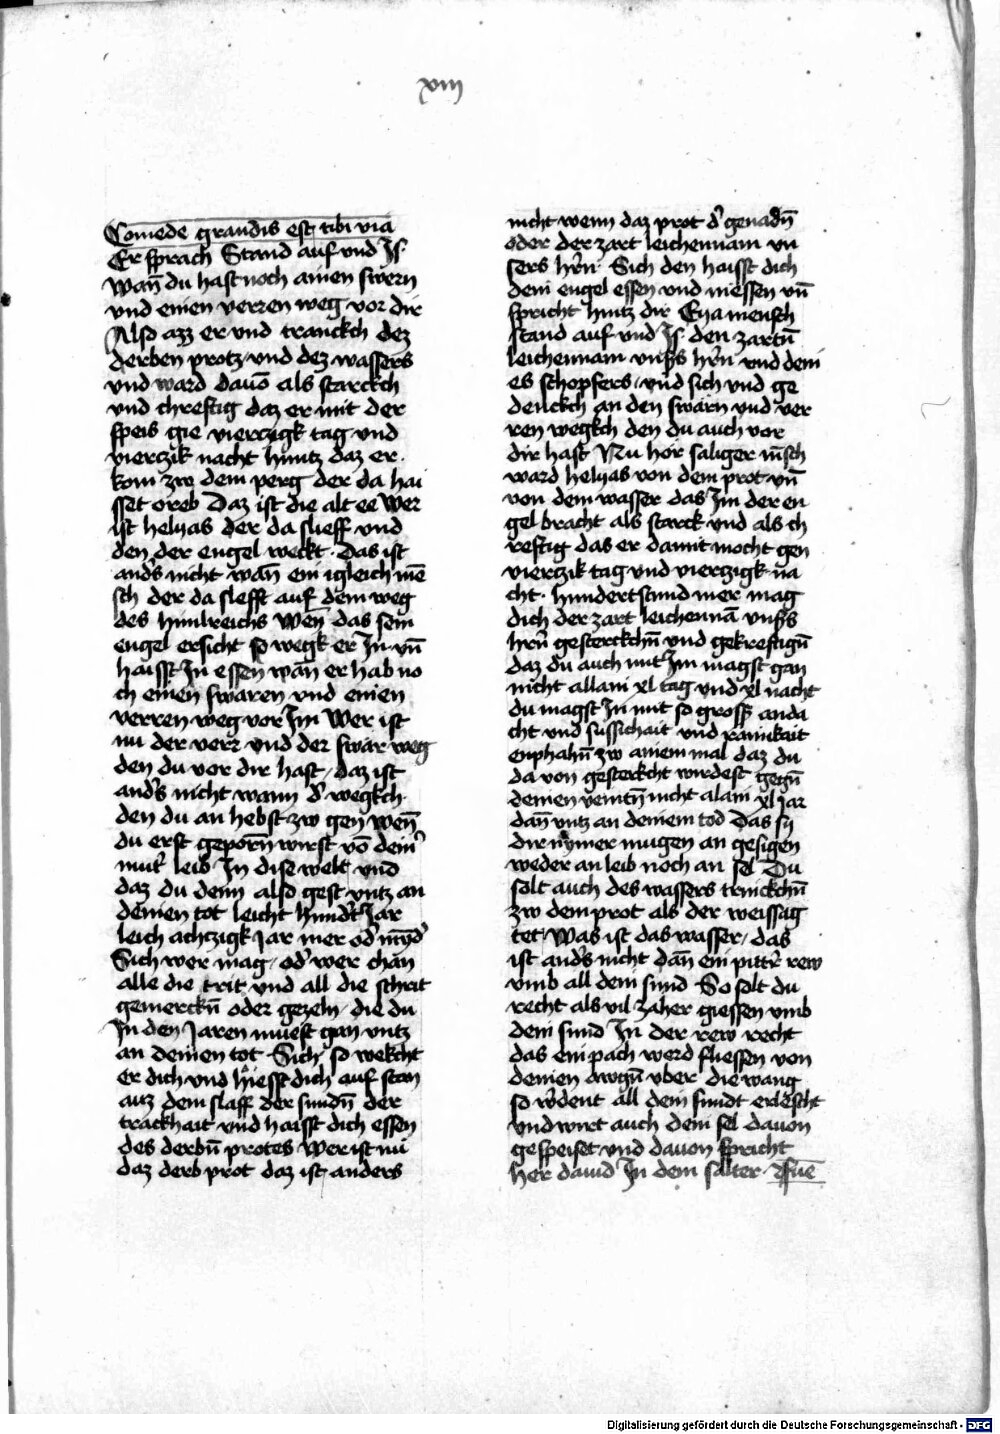 xiii
Comede grandis est tibi via
Er sprach Stand auf und Is
Wañ du hast noch ainen swern
vnd einen verren weg vor dir
Also azz er vnd tranckch dez
derben protz vnd dez wassers
vnd ward dauō als starckch
vnd chreftig daz er mit der
speis gie vierczigk tag vnd
vierczik nacht huntz daz er
kom zw dem perg der da hai
sset oreb Daz ist die alt ee Wer
ist helyas der da slieff vnd
den der engel weckt · Das ist
and's nicht wañ ein igleich mē
sch der da slefft auf dem weg
des himlreichs Weñ das sein
engel ersicht so wegk er In vñ
haisst In essen wañ er hab no
ch einen swaren vnd einen
verren weg vor Im Wer ist
nu der verr vnd der swar weg
den du vor dir hast / daz ist
and's nicht wann d' wegkch
den du an hebst zw gen weñ
du erst geporñ wirst vō dein'
mut' leib In dise welt vnd
daz du denn also gest vntz an
deinen tot leicht hund't Jar
leich achczigk Jar mer od' mynd'
Sich wer mag / od' wer chan
alle die trit vnd all die schrit
gemerckñ oder gezeln / die du
In den Jaren muest gan vntz
an deinen tot Sich so wekcht
er dich vnd hiesst dich auf stan
auz dem slaff der sundñ der
trackhait vnd haisst dich essen
des derbñ protes Wer ist nu
daz derb prot daz ist anders
nicht wenn daz prot d' genadñ
oder der zart leichennam vn
sers hrñ Sich den haisst dich
dein engel essen vnd niessen vñ
spricht huntz dir Eya mensch
stand auf vnd Is den zartñ
leichennam vns's hrñ vnd dein
es schopfers / vnd sich vnd ge
denckch an den swarn vnd ver
ren wegkch den du auch vor
dir hast Nu hör saliger m̄sch
ward helyas von dem prot vñ
von dem wasser das Im der en
gel bracht als starck vnd als ch
reftig das er damit mocht gen
vierczik tag vnd vierczigk na
cht · hundertstund mer mag
dich der zart leichennā vns's
hrñ gesterckchñ vnd gekreftigñ
daz du auch mit Im magst gan
nicht allain xl tag vnd xl nacht
du magst In mit so gross' anda
cht vnd sussichait vnd rainikait
enphahñ zw ainem mal daz du
da von gesterkcht wirdest gegñ
deinen veintñ nicht alain xl Jar
dañ vntz an deinem tod Das sy
dir nymer mugen an gesigen
weder an leib noch an sel Du
solt auch des wassers trinckchñ
zw dem prot als der weissag
tet / Was ist das wasser / das
ist and's nicht dañ ein pitt'r rew
vmb all dein sund So solt du
recht als vil zaher giessen vmb
dein sund In der rew recht
das ein pach werd fliessen von
deinen awgñ vber die wang
so w'dent all dein sundt erlescht
vnd wirt auch dein sel dauon
gespeiset vnd dauon spricht
her dauid In dem salter · Fuē